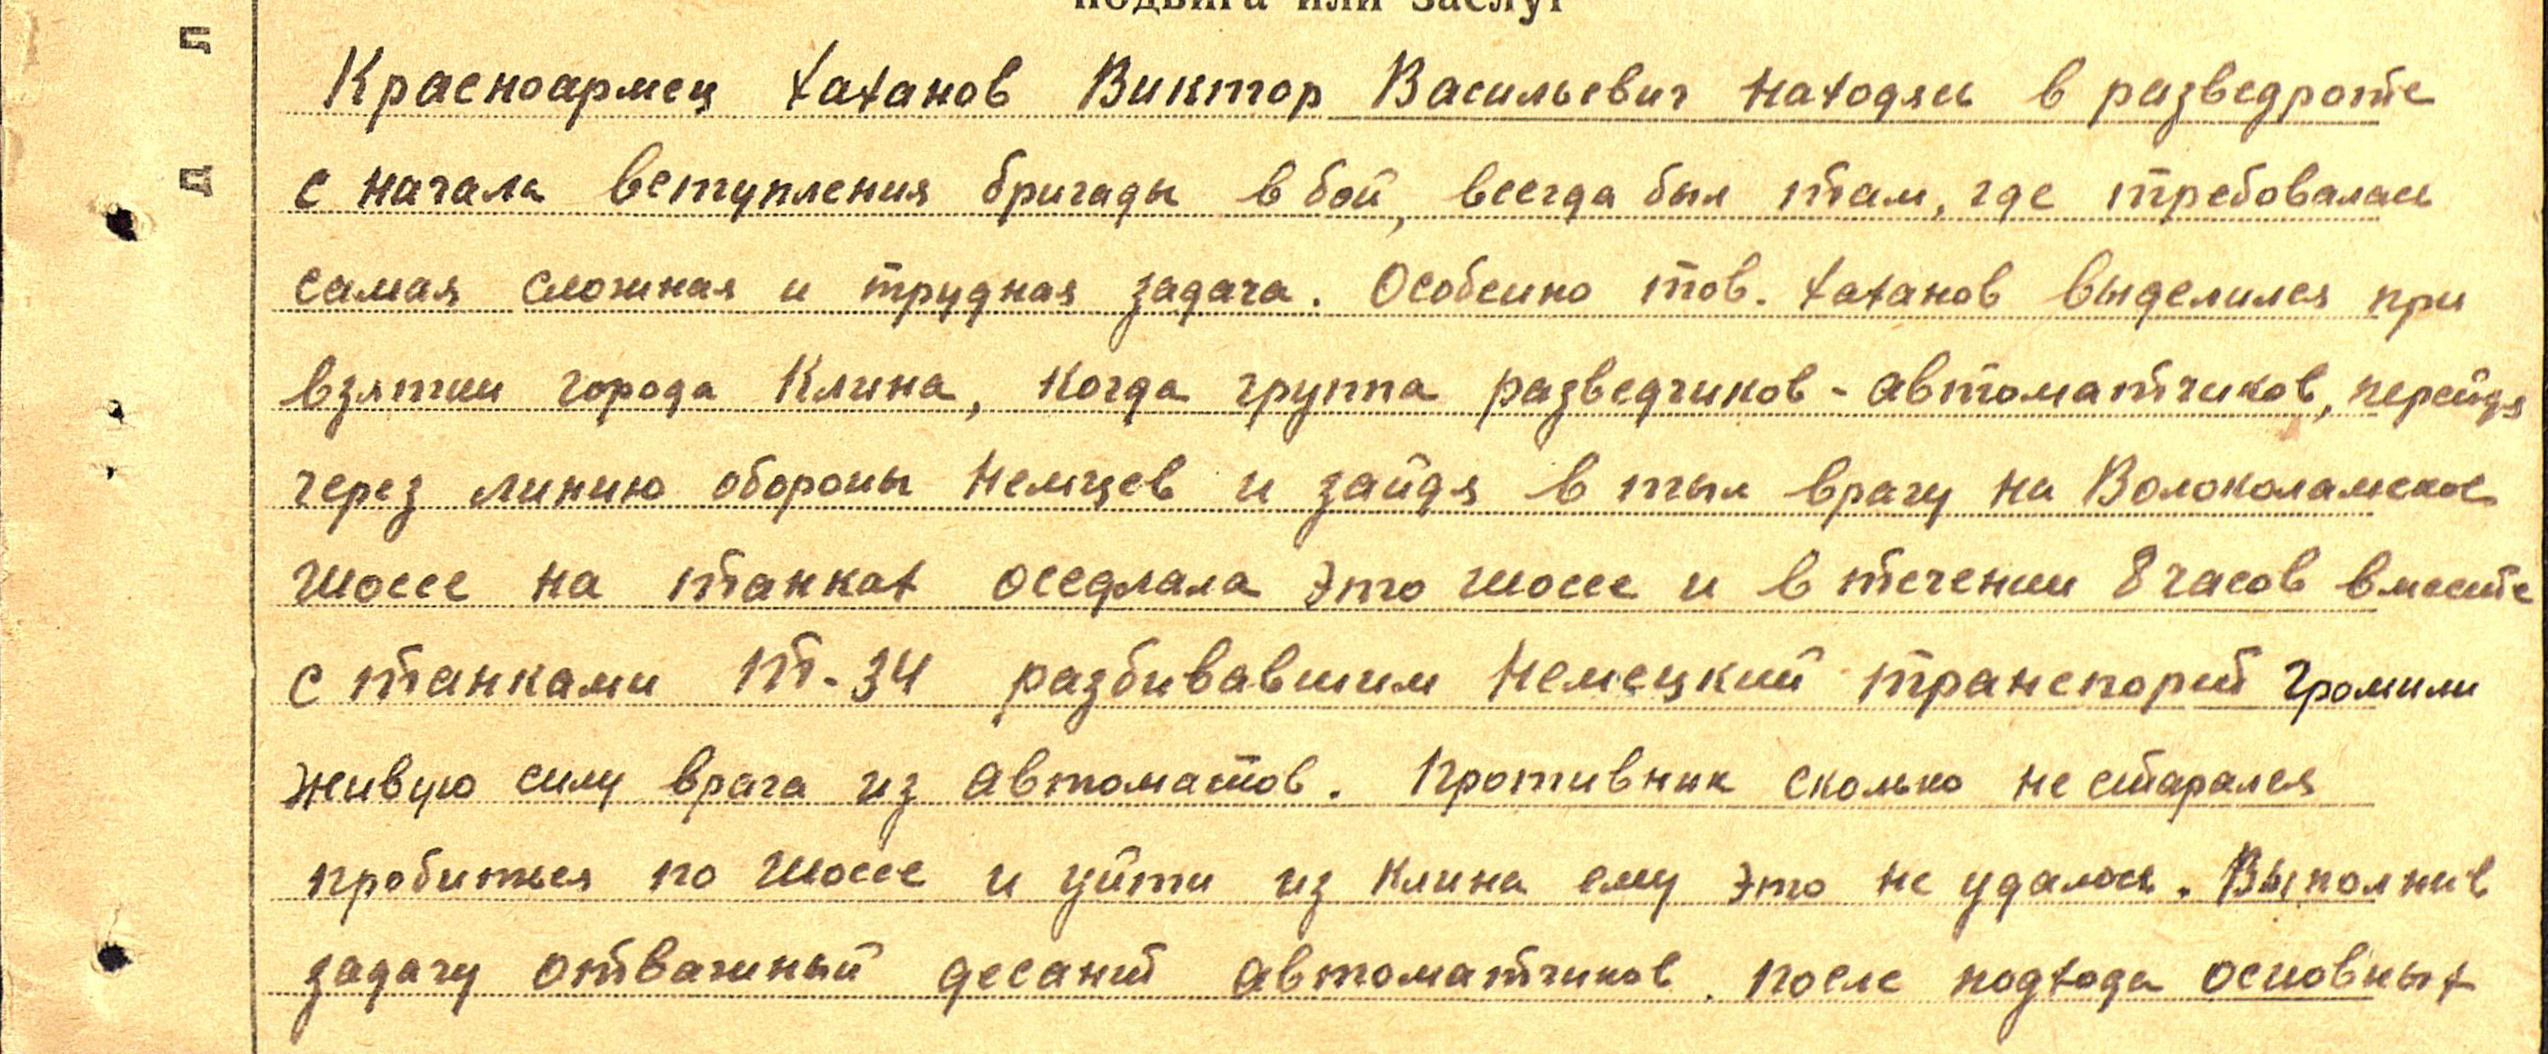 подвига или заслуг
Л
Д
Красноармец Хаханов Виктор Васильевич находясь в разведроте
с начала вступления бригады в бой, всегда был там, где требовалась
самая сложная и трудная задача. Особенно тов. Хаханов выделился при
взятии города Клина, когда группа разведчиков - автоматчиков, перейдя
через линию обороны немцев и зайдя в тыл врагу на Волоколамское
шоссе на танках оседлала это шоссе и в течении 8 часов вместе
с танками Т-34 разбивавшим немецкий транспорт громили
живую силу врага из автоматов. Противник сколько не старался
пробиться по шоссе и уйти из Клина ему это не удалось. Выполнив
задачу отважный десант автоматчиков, после подхода основных